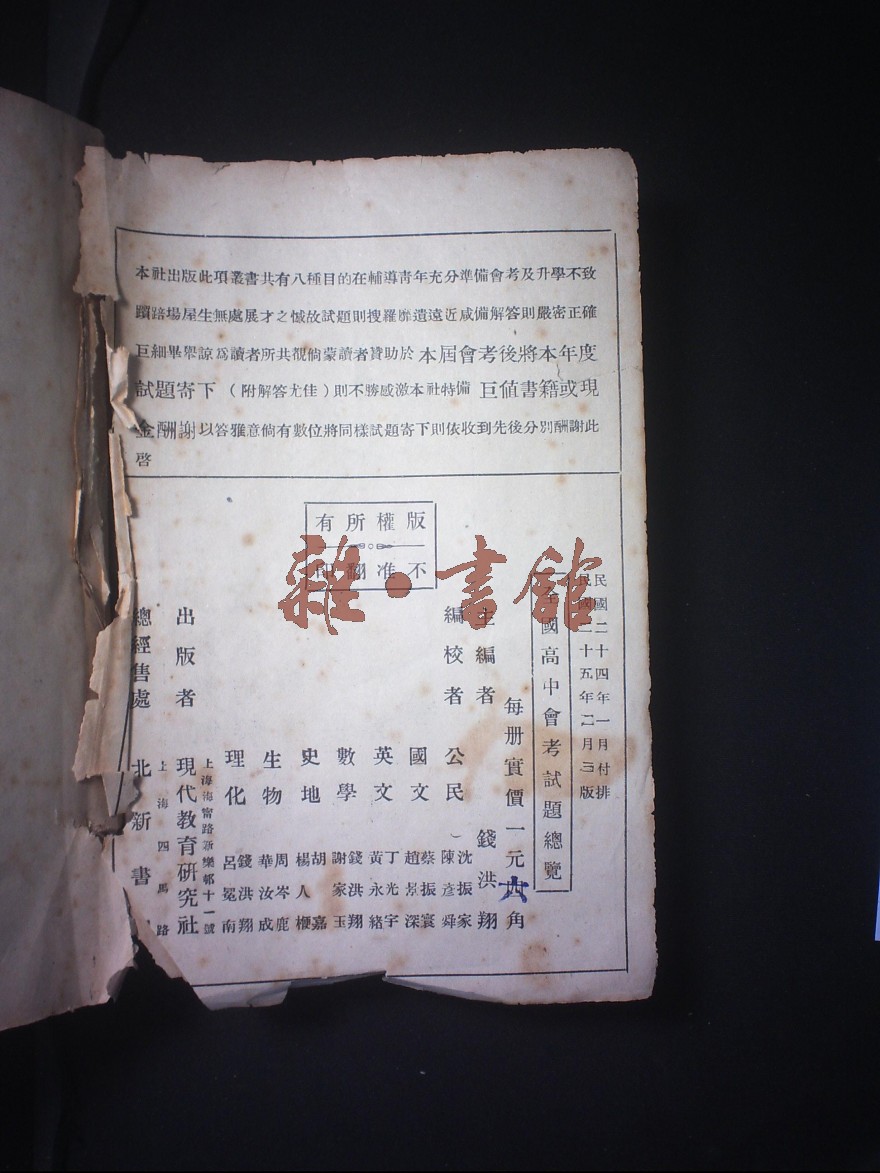 本社出版此項叢書共有八種目的在輔導靑年充分準備會考及升學不致
躓踣場屋生無處展才之憾故試題則搜羅靡遺遠近咸備解答則嚴密正確
巨細畢舉諒爲讀者所共覩倘蒙讀者贊助於本屆會考後將本年度
試題寄下（附解答尤佳）則不勝感激本社特備巨値書籍或現
金酬謝以答雅意倘有數位將同樣試題寄下則依收到先後分別酬謝此
啓
版權所有
不准翻印
民國二十四年一月付排
民國二十五年二月三版
全國高中會考試題總覽
每册實價一元六角
主編者 錢洪翔
編校者
公民 沈振家 陳彥舜
國文 蔡振寰 趙景深
英文 丁光宇 黃永緒
數學 錢洪翔 謝家玉
史地 胡嘉 楊人楩
生物 周岑鹿 華汝成
理化 錢洪翔 呂冕南
出版者 現代教育硏究社
上海海甯路新樂邨十一號
總經售處 北新書
上海四馬路
雜·書館